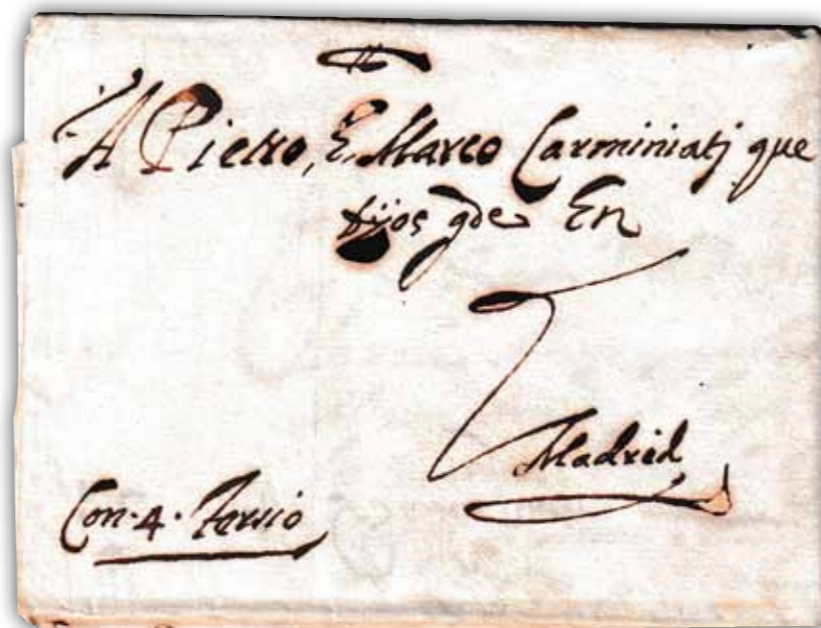 A Pietro, E Marco Carminiatj que
Dios gde En
Madrid
Con . 4 .